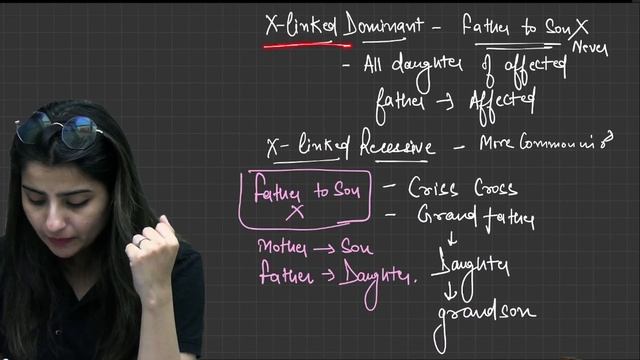 X-linked Dominant - Father to Son X
Never
- All daughter of affected
father → Affected
X-linked Recessive - More Common in ♂
Father to Son
X
- Criss Cross
- Grand father
↓
Daughter
↓
grandson
Mother → Son
Father → Daughter.